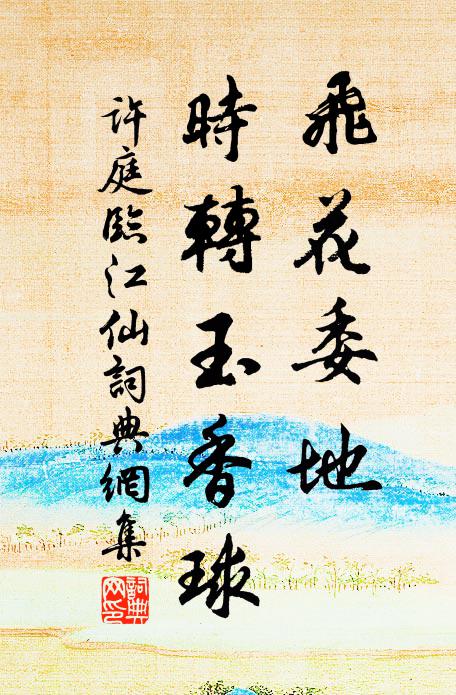 飛花委地
時轉玉香球
許庭臨江仙詞典網集
詞典網印